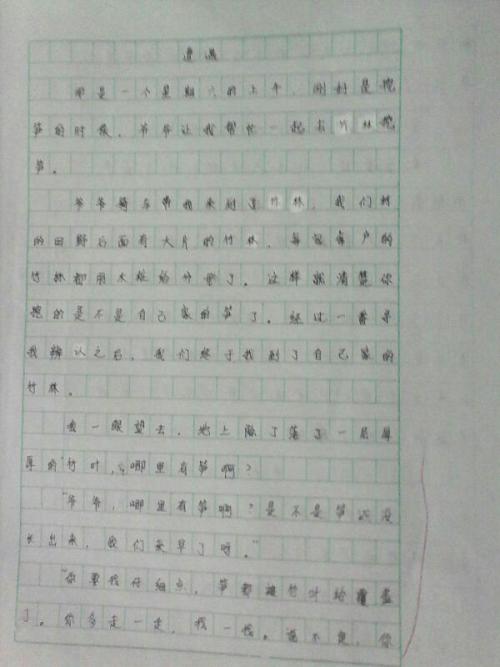 遭遇
那是一个星期六的上午，刚好是挖
笋的时候，爷爷让我帮忙一起去竹林挖
笋。
爷爷骑车带我来到了竹林，我们村
的田野后面有大片的竹林，每家每户的
竹林都用木桩给分带了。这样就清楚你
挖的是不是自己家的笋了。经过一番寻
找辨认之后，我们终于找到了自己家的
竹林。
我一眼望去，地上除了落了一层厚
厚的竹叶，哪里有笋啊？
“爷爷，哪里有笋啊？是不是笋还没
长出来，我们来早了呀。”
“你要找仔细点，笋都被竹叶给覆盖
了。你多走一走，找一找。说不定，你